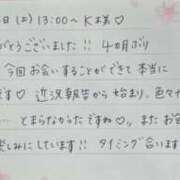 日(土)13:00〜 K様♡
がとうございました!! 4か月ぶり
今回お会いすることができて本当に
です♡ 近況報告から始まり、色々
… とまらなかったですね♡,, またお会
楽しみにしています!! タイミング合います